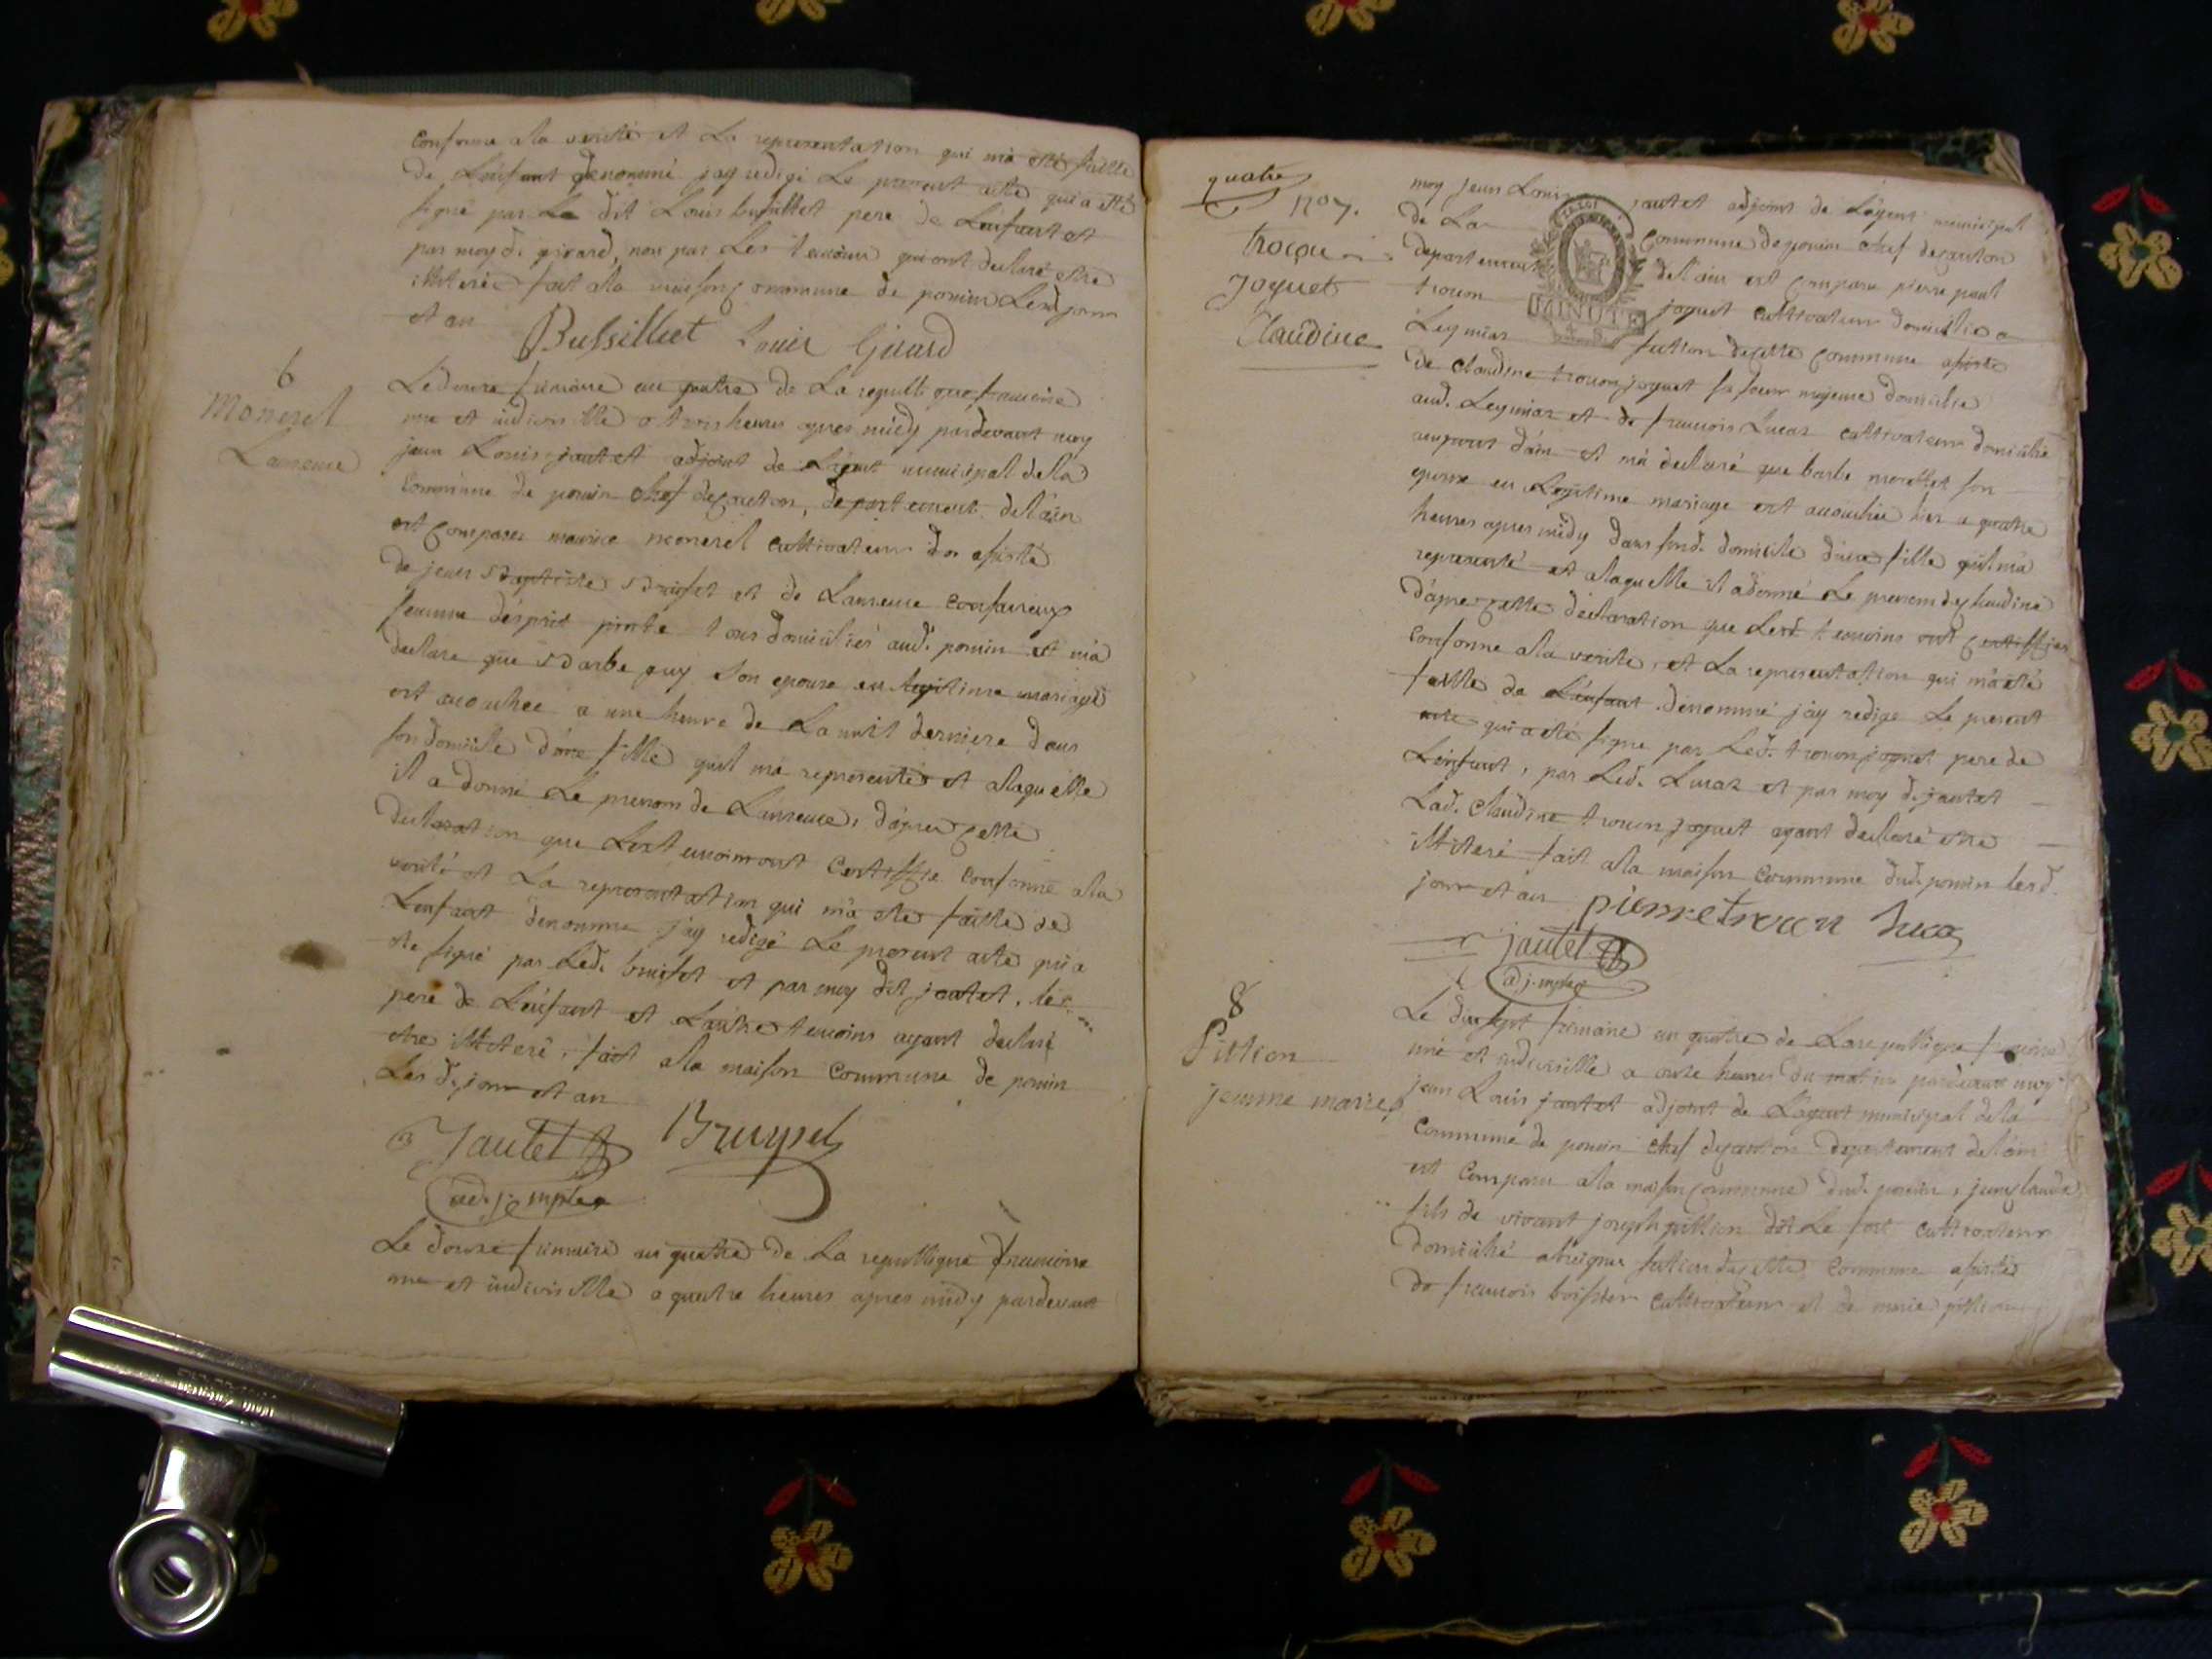 conforme a la verité et La representation qui m'a eté faitte
de L'enfant denommé j'ay redigé Le present acte qui a eté
signé par Le dit Louis bussillet pere de L'enfant et
par moy d. girard, non par Les temoins qui ont declaré etre
illiteré fait a la maison commune de poncin Lesd jour
et an
Bussilliet Louis Girard
6
Monerel
Laurence
Le douze frimaire an quatre de La republique francoise
une et indivisible a trois heures apres midy pardevant moy
jean Louis jantet adjoint de L'agent municipal de la
Commune de poncin chef de canton, departement de l'ain
est comparu maurice monerel cultivateur d'on assisté
de jean Baptiste Bruiset et de Laurence
femme d'esprit pinte tous domiciliés aud. poncin et m'a
declare que Barbe guy son epouse en legitime mariage
est accouchee a une heure de La nuit derniere dans
son domicile d'une fille quil m'a representé et a laquelle
il a donné Le prenom de Laurence, d'apres cette
declaration que Lesd temoins ont certiffié conforme a la
verité et La representation qui m'a eté faitte de
L'enfant denommé j'ay redigé Le present acte qui a
ete signé par Led. bruiset et par moy dit jantet, le
pere de L'enfant et L'autre temoins ayant declaré
etre illiteré, fait a la maison commune de poncin
Les d. jour et an
Jantet Bruyset
adj. mpla
Le douze frimaire an quatre de La republique francoise
une et indivisible a quatre heures apres midy pardevant
quatre
no 7.
trocon
Joguet
Claudine
moy jean Louis jantet adjoint de L'agent municipal
de La Commune de poncin chef de canton
departement de l'ain est comparu pierre paul
trocon joguet cultivateur domicilié a
Leymiar section de cette commune assisté
de Claudine trocon joguet sa soeur majeure domiciliee
aud. Leymiar et de francois Lucas cultivateur domicilié
au pont d'ain et m'a declaré que barbe morettet son
epouse en Legitime mariage est accouchée hier a quatre
heures apres midy dans sond. domicile d'une fille quil m'a
representé et a laquelle il a donné Le prenom de claudine
d'apre cette declaration que Lesd temoins ont certiffiee
conforme a la verité, et La representation qui m'a eté
faitte de L'enfant denommé j'ay redigé Le present
acte qui a eté signé par Led. trocon joguet pere de
L'enfant, par Led. Lucas et par moy d. jantet
Lad. Claudine trocon joguet ayant declaré etre
illiteré fait a la maison commune dud. poncin lesd.
jour et an
pierre trocon Luca
jantet
adj. mpla
TA LOI
MINUTE
8
Pittion
jeanne marie
Le dix sept frimaire an quatre de La republique francoise
une et indivisible a onze heures du matin pardevant moy
jean Louis jantet adjoint de L'agent municipal de la
commune de poncin chef de canton departement de l'ain
est comparu a la maison commune dud. poncin, jean claude
fils de vivant joseph pittion dit Le fort cultivateur
domicilié a breignes section de cette commune assisté
de francois boissier cultivateur et de marie pittion